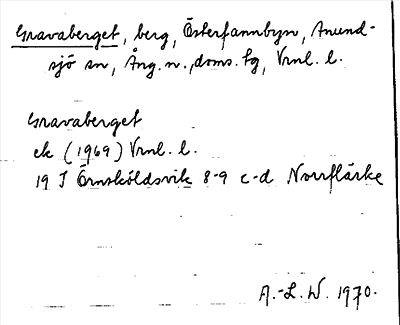 Gravaberget, berg, Österfannbyn, Anund-
sjö sn, Ång. n., doms. tg, Vrnl. l.
Gravaberget
ek (1969) Vrnl. l.
19 J Örnsköldsvik 8-9 c-d Norrflärke
A.-L. W. 1970.